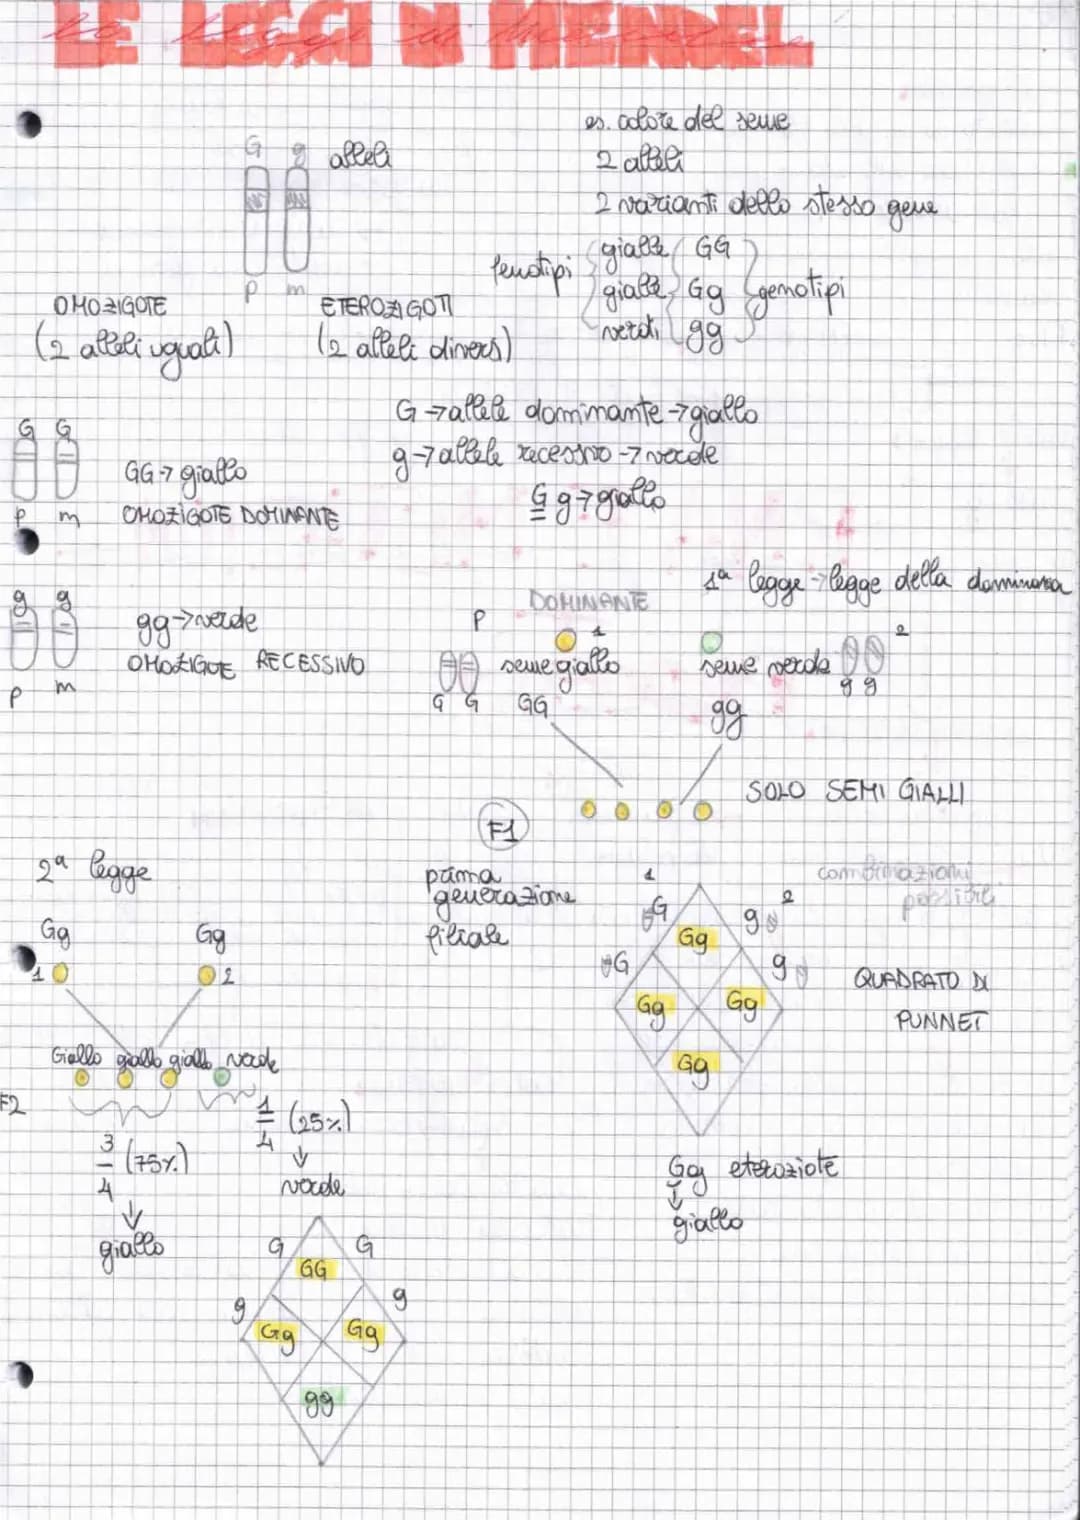 LE LEGGI DI MENDEL
es. colore del seme
G g alleli
2 alleli
2 varianti dello stesso gene
fenotipi
gialli GG
gialli Gg
verdi gg
genotipi
P m
OMOZIGOTE
(2 alleli uguali)
ETEROZIGOTI
(2 alleli diversi)
G → allele dominante → giallo
g → allele recessivo → verde
Gg → giallo
G G
GG → giallo
P m
OMOZIGOTE DOMINANTE
1ª legge → legge della dominanza
g g
gg → verde
OMOZIGOTE RECESSIVO
P m
P
DOMINANTE
1
2
seme giallo
seme verde
G G
GG
g g
gg
SOLO SEMI GIALLI
F1
prima
generazione
filiale
1
2
combinazioni
possibili
G g
G g
Gg
Gg Gg
Gg
QUADRATO DI
PUNNET
Gg eteroziote
↓
giallo
2ª legge
Gg Gg
1 2
Giallo giallo giallo verde
F2
3/4 (75%)
↓
giallo
1/4 (25%)
↓
verde
G G
g g
GG
Gg Gg
gg